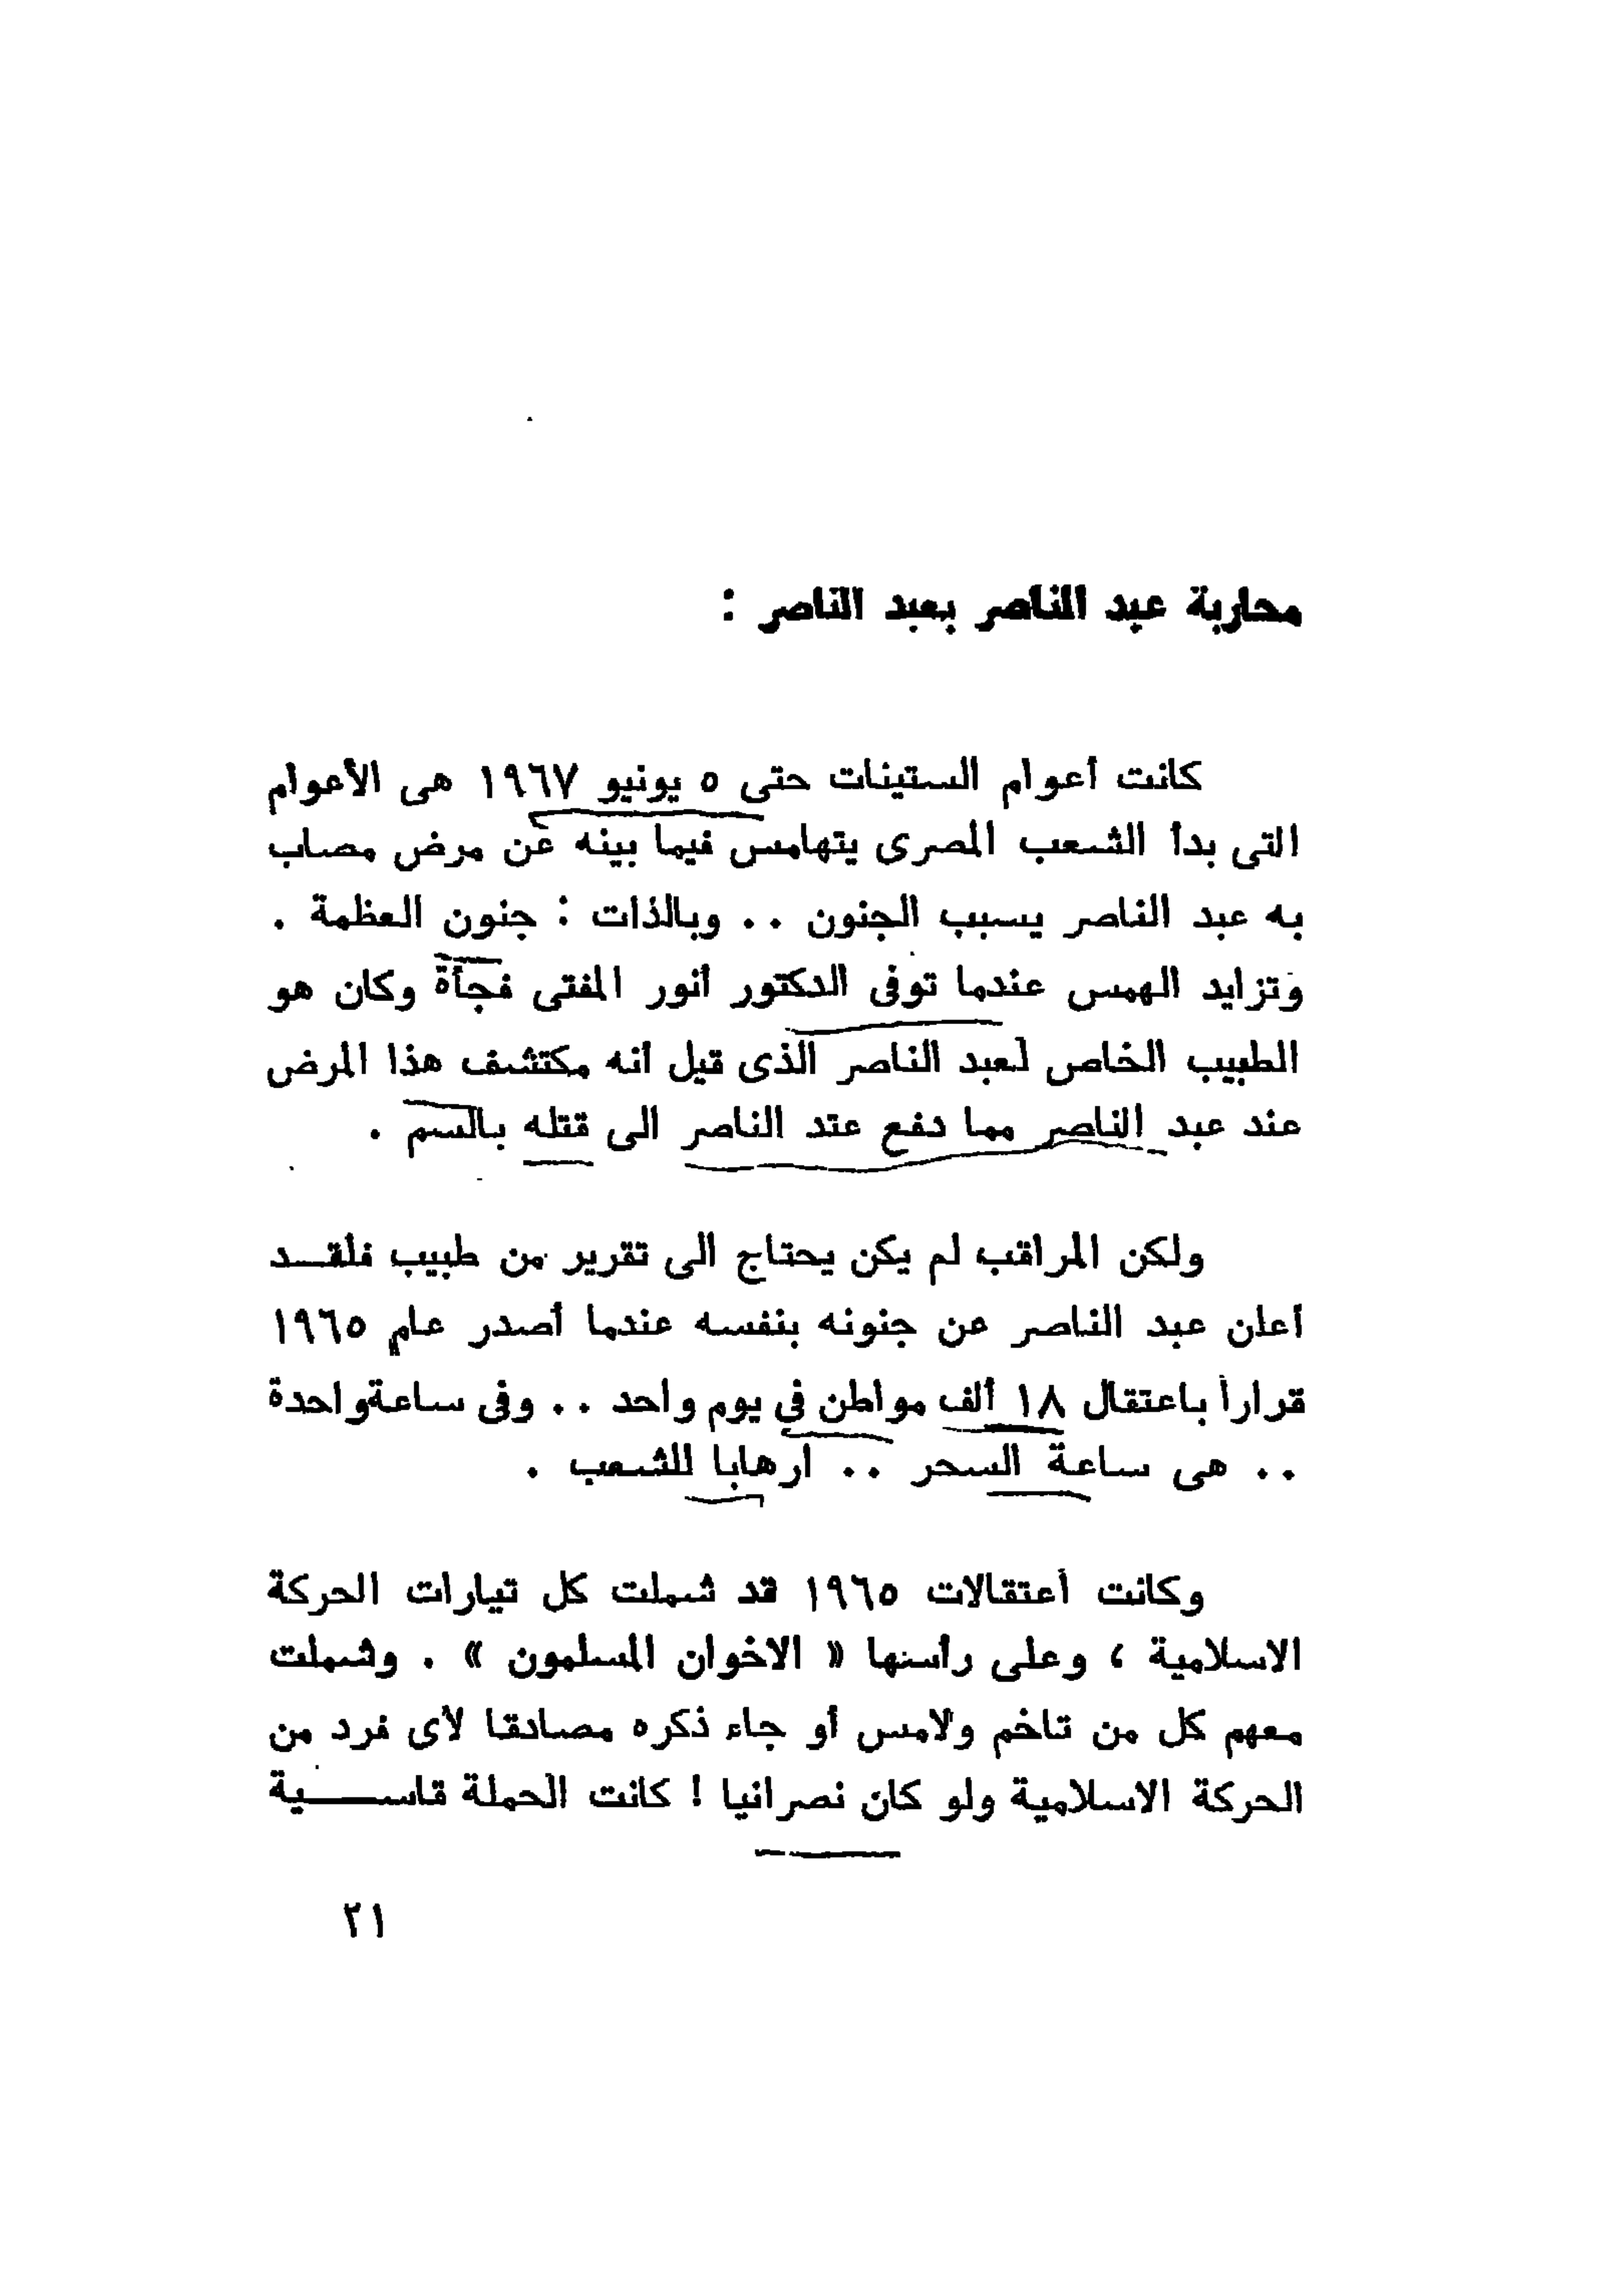 محاربة عبد الناصر بعبد الناصر :
كانت أعوام الستينات حتى ٥ يونيو ١٩٦٧ هى الأعوام
التى بدأ الشعب المصرى يتهامس فيما بينه عن مرض مصاب
به عبد الناصر يسبب الجنون . . وبالذات : جنون العظمة .
وتزايد الهمس عندما توفى الدكتور أنور المفتى فجأة وكان هو
الطبيب الخاص لعبد الناصر الذى قيل أنه مكتشف هذا المرض
عند عبد الناصر مما دفع عتد الناصر الى قتله بالسم .
ولكن المراقب لم يكن يحتاج الى تقرير من طبيب فلقـــد
أعلن عبد الناصر عن جنونه بنفسه عندما أصدر عام ١٩٦٥
قراراً باعتقال ١٨ ألف مواطن في يوم واحد . . وفى ساعةواحدة
. . هى ساعة السحر . . ارهابا للشعب .
وكانت أعتقالات ١٩٦٥ قد شملت كل تيارات الحركة
الاسلامية ، وعلى رأسنها « الاخوان المسلمون » . وشملت
معهم كل من تاخم ولامس أو جاء ذكره مصادقا لأى فرد من
الحركة الاسلامية ولو كان نصرانيا ! كانت الحملة قاســـــية
٢١